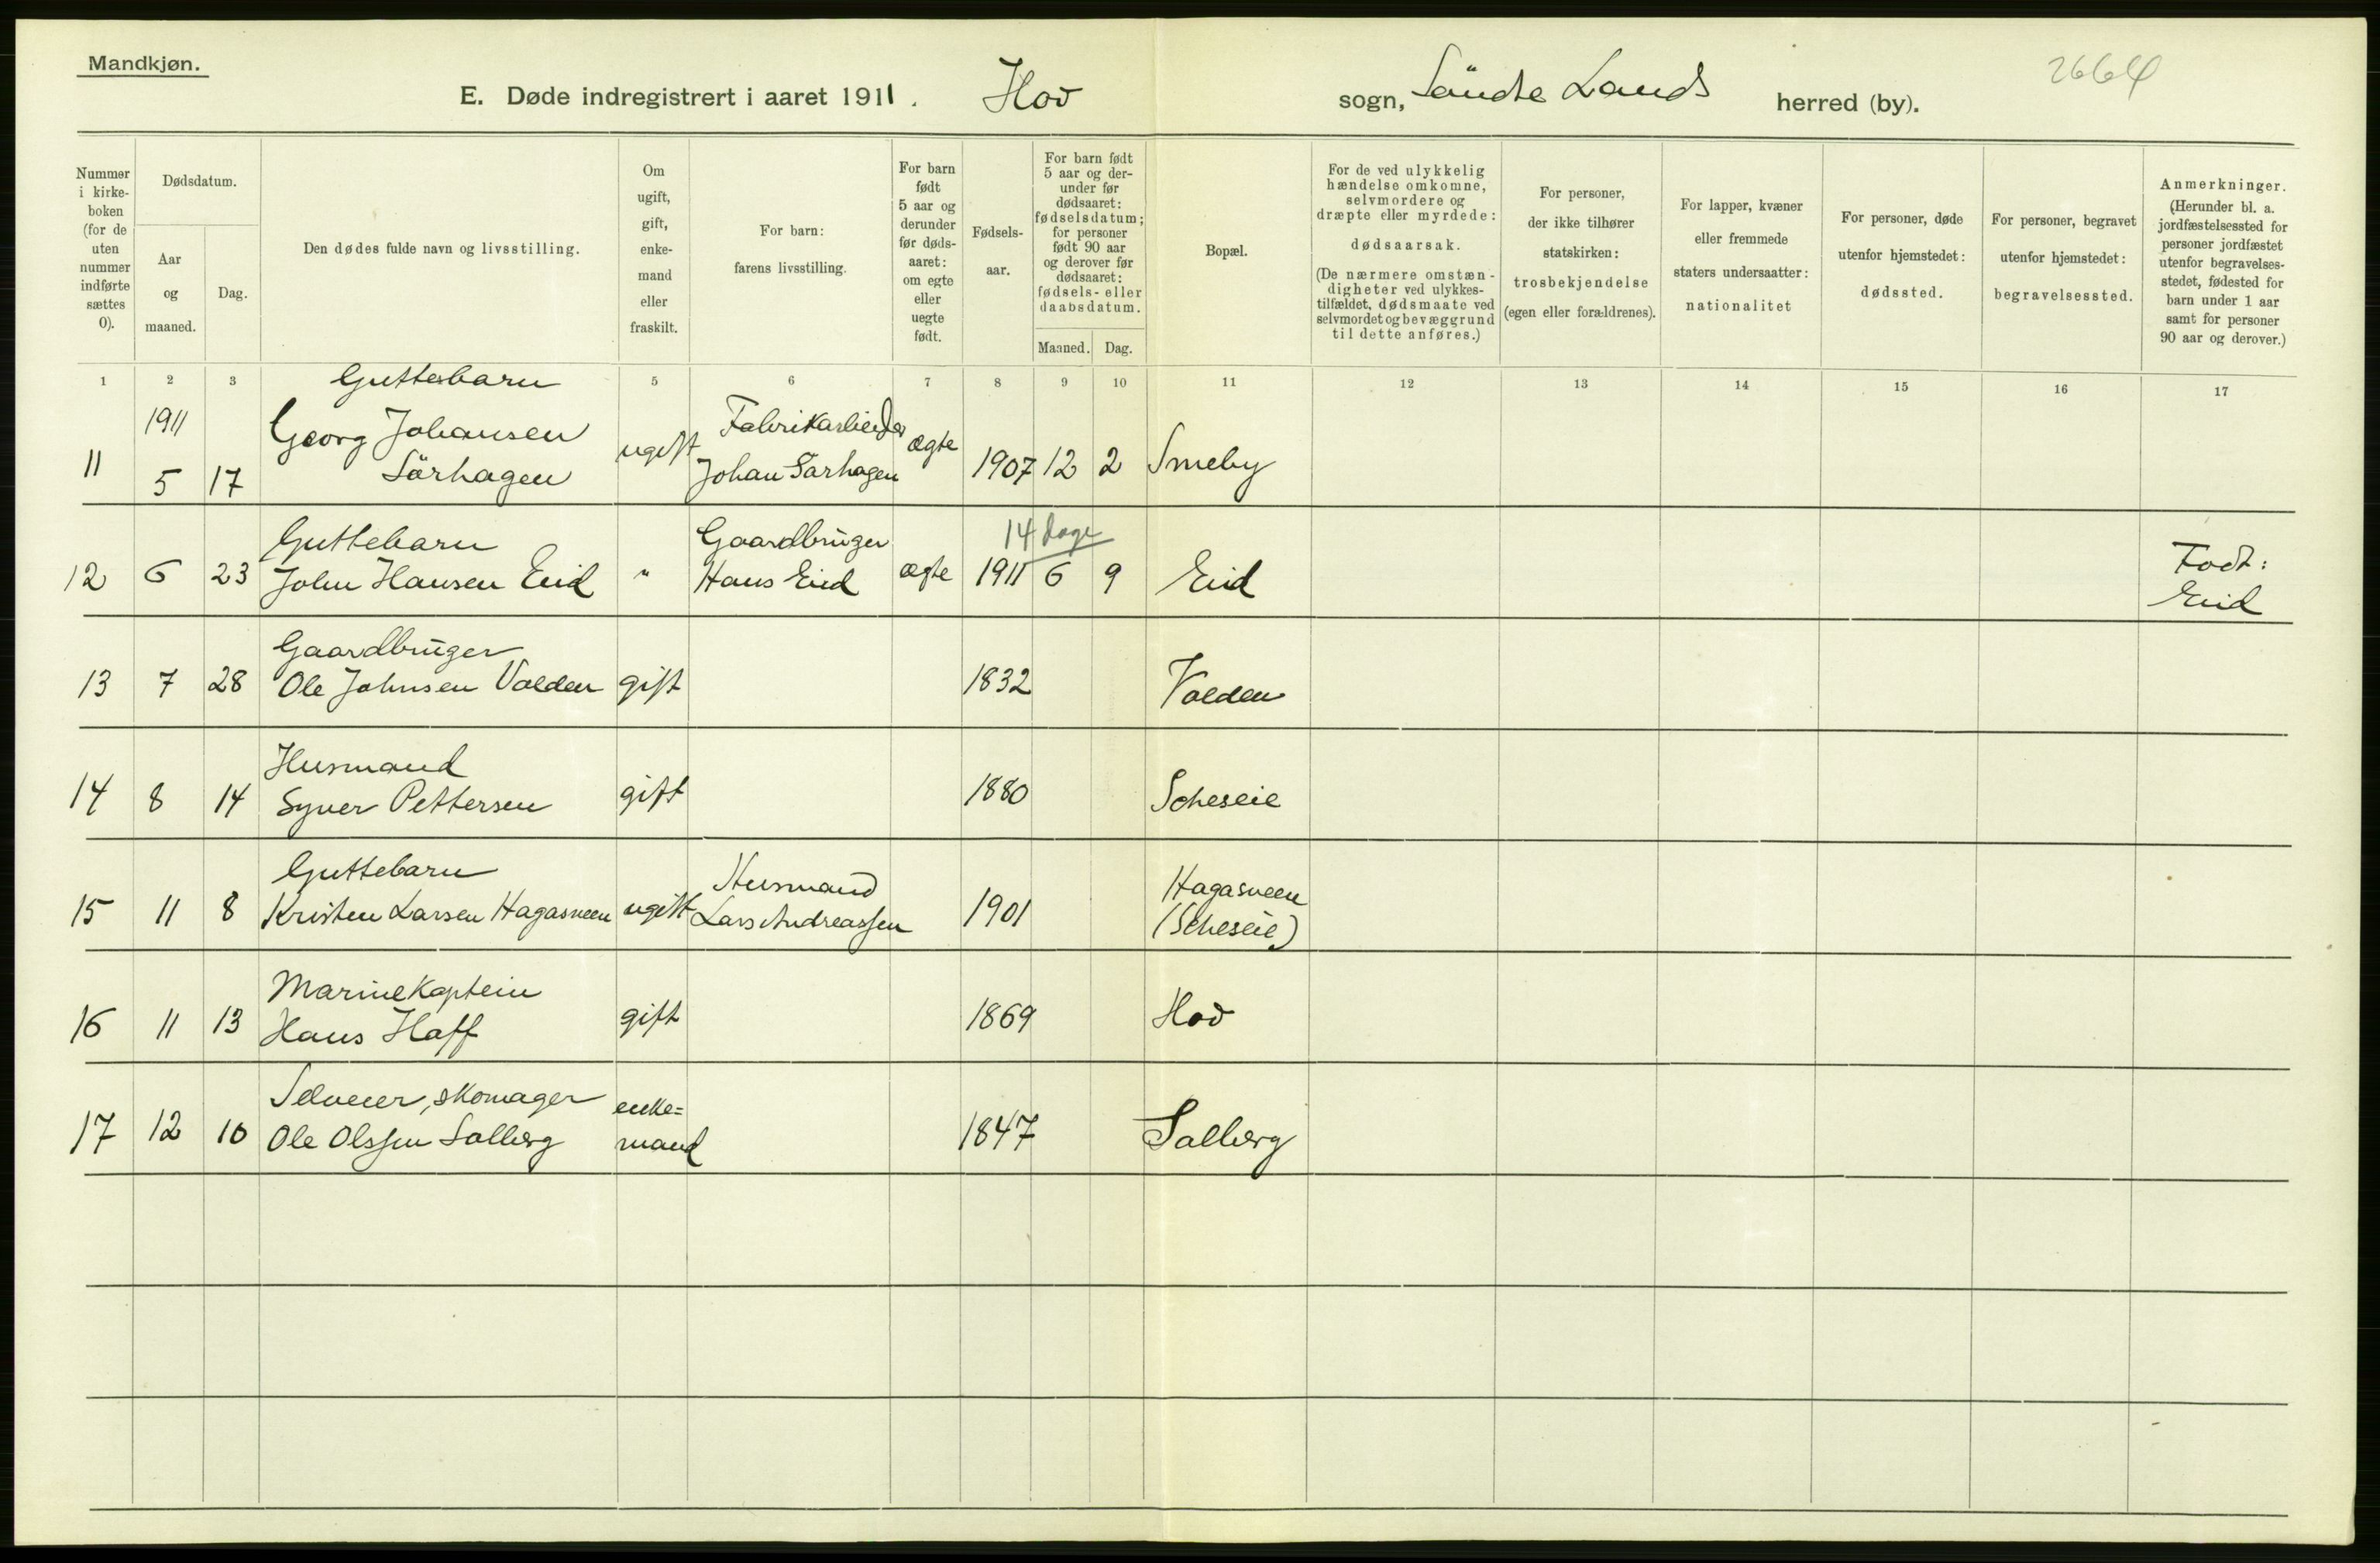 Mandkjøn.
2664
E. Døde indregistrert i aaret 1911. Hov sogn, Söndre Lands herred (by).
Nummer i kirkeboken (for de uten nummer indførte sættes 0).
Dødsdatum.
Aar og maaned.
Dag.
Den dødes fulde navn og livsstilling.
Om ugift, gift, enkemand eller fraskilt.
For barn: farens livsstilling.
For barn født 5 aar og derunder før dødsaaret: om egte eller uegte født.
Fødselsaar.
For barn født 5 aar og derunder før dødsaaret: fødselsdatum; for personer født 90 aar og derover før dødsaaret: fødsels- eller daabsdatum.
Maaned. Dag.
Bopæl.
For de ved ulykkelig hændelse omkomne, selvmordere og dræpte eller myrdede: dødsaarsak. (De nærmere omstændigheter ved ulykkestilfældet, dødsmaate ved selvmordet og bevæggrund til dette anføres.)
For personer, der ikke tilhører statskirken: trosbekjendelse (egen eller forældrenes).
For lapper, kvæner eller fremmede staters undersaatter: nationalitet
For personer, døde utenfor hjemstedet: dødssted.
For personer, begravet utenfor hjemstedet: begravelsessted.
Anmerkninger. (Herunder bl. a. jordfæstelsessted for personer jordfæstet utenfor begravelsesstedet, fødested for barn under 1 aar samt for personer 90 aar og derover.)
1 2 3 5 6 7 8 9 10 11 12 13 14 15 16 17
Guttebarn
1911 Georg Johansen Fabrikarbeider
11 5 17 Sörhagen ugift Johan Sørhagen ægte 1907 12 2 Smeby
Guttebarn Gaardbruger 14 dage Født:
12 6 23 John Hansen Eid " Hans Eid ægte 1911 6 9 Eid Eid
Gaardbruger
13 7 28 Ole Johnsen Volden gift 1832 Volden
Husmand
14 8 14 Syver Pettersen gift 1880 Scheseie
Guttebarn Husmand Hagasveen
15 11 8 Kristen Larsen Hagasveen ugift Lars Andreassen 1901 (Scheseie)
Marinekaptein
16 11 13 Hans Haff gift 1869 Hov
Selveier, skomager enke=
17 12 10 Ole Olssen Solberg mand 1847 Solberg